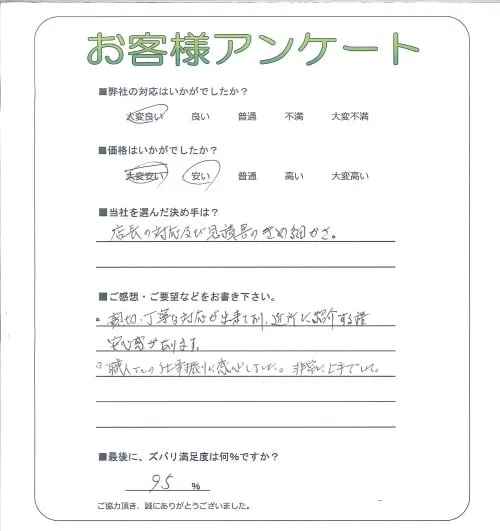 お客様アンケート
■弊社の対応はいかがでしたか？
大変良い 良い 普通 不満 大変不満
■価格はいかがでしたか？
大変安い 安い 普通 高い 大変高い
■当社を選んだ決め手は？
店長の対応及び見積書のきめ細かさ。
■ご感想・ご要望などをお書き下さい。
親切、丁寧な対応が出来ており、近所に紹介する程
安心感があります。
職人さんの仕事振りに感心しました。非常に上手でした。
■最後に、ズバリ満足度は何%ですか？
95 %
ご協力頂き、誠にありがとうございました。